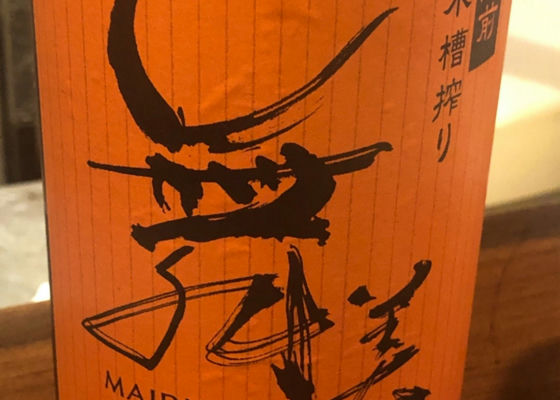 前
木槽搾り
舞
美
MAI